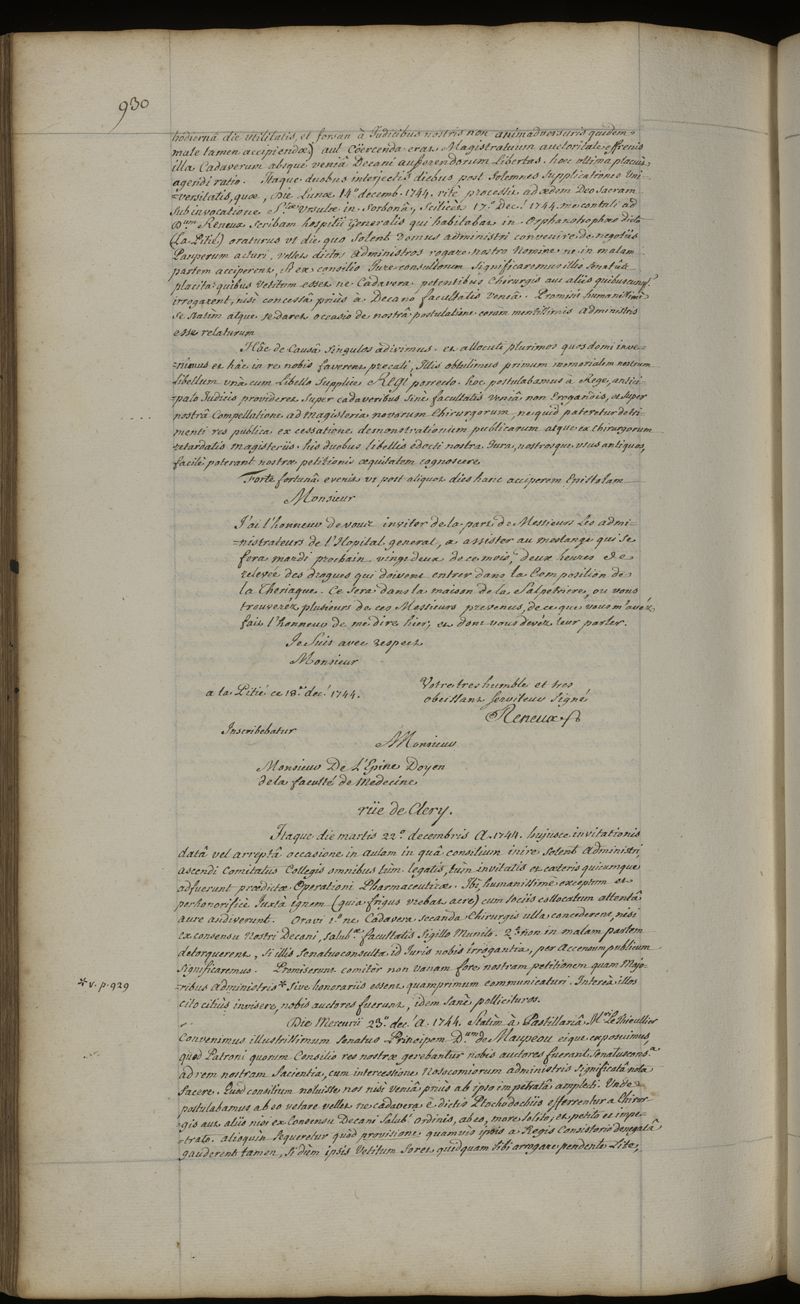 930
hodiernâ die utilitatis, et forsan à Judicibus nostris non animadversuris quidem
male tamen accipiendæ) aut Coërcenda erat Magistratuum auctoritate effrenis
illa Cadaverum absque veniâ Decani aufferendorum Libertas. hæc ultima placuit
agendi ratio. Itaque duobus interjectis diebus post Solemnes Supplicationes Uni-
=versitatis, quæ, Die Lunæ 14.ª decemb. 1744. ritè processit ad ædem Deo Sacram
Sub invocatione S.tæ Ursulæ in Sorbonâ, Scilicet 17.ª Dec.! 1744. me contuli ad
D.um Reneux Scribam hospitii Generalis qui habitabat in Orphanotrophæo dicto
(La Pitié) oraturus ut die quo Solent Domus administri convenire de negotiis
Pauperum acturi, vellet dictos administros rogare nostro Nomine ne in malam
partem acciperent, Si ex consilio Jure consultorum Significaremus illis Senatûs
placita quibus Vetitum esset ne Cadavera petentibus Chirurgis aut aliis quibuscunq.
irrogarent, nisi concessâ priùs à Decano facultatis Veniâ. Promisit humanissimè
Se Statim atque se daret occasio de nostrâ postulatione coram meritissimis administris
esse relaturum
Hâc de Causâ Singulos adivimus. et allocuti plurimos quos domi inve-
=nimus et hâc in re nobis faverent precati, Illis obtulimus primum memorialem nostrum
Libellum unà cum Libello Supplice Regi porrecto. hoc postulabamus à Rege, antici-
pato Judicio provideret Super cadaveribus Sine facultatis Veniâ non Erogandis, et Super
nostrâ Compellatione ad magisteria novarum Chirurgorum, ne quid pateretur detri-
menti res publica ex cessatione demonstrationum publicarum atque ex Chirurgorum
retardatis magisteriis. his duobus libellis edocti nostra Jura, nostrosque usus antiquos,
facilè poterant nostræ petitionis æquitatem cognoscere
Forte fortunâ evenit ut post aliquot dies hanc acciperem Epistolam
Monsieur
J'ai l'honneur de vous inviter de la part de Messieurs Les admi-
=nistrateurs de l'Hopital general, a assister au meslange qui Se
fera mardi prochain vingt deux de ce mois, deux heures de
relevée des drogues qui doivent entrer dans la Composition de
la Theriaque. Ce Sera dans la maison de la Salpetriere, ou vous
trouverés plusieurs de ces Messieurs prevenus, de ce que vous m'avés
fait l'honneur de me dire hier, et dont vous deviés leur parler.
Je Suis avec respect
Monsieur
a la Pitié ce 18.e dec.! 1744.
Votre tres humble et tres
obeissant Serviteur Signé
Reneux
Inscribebatur
Monsieur
Monsieur De L'Epine Doyen
de la faculté de Medecine
rüe de Clery.
Itaque die martis 22.ª decembris A. 1744. hujusce invitationis
datâ vel arreptâ occasione in aulam in quâ consilium inire Solent Administri,
ascendi Comitatus Collegis omnibus tùm legatis, tum invitatis et cæteris quicumque
adfuerunt prædictæ Operationi Pharmaceuticæ. Ibi humanissimè exceptum et
perhonorificè Juxtà ignem (quia frigus urebat acre) cum sociis collocatum attentâ
aure audiverunt. Oravi 1.º ne Cadavera Secanda Chirurgis ulla concederent, nisi
ex consensu Nostri Decani, Salub.æ facultatis Sigillo Munito. 2.º non in malam partem
detorquerent, Si illis Senatusconsulta id Juris nobis irrogantia, per Accensum publicum
Significaremus. Promiserunt comiter non vanam fore nostram petitionem quam Majo-
=ribus Administris* Sive honorariis essent quamprimum communicaturi. Interea illos
*v. p. 929
cito citiùs invisere, nobis auctores fuerunt, idem Sanè pollicituros.
Die Mercurii 23.ª dec.! A. 1744. Statim à Pastillariâ M.ri Le Thieullier
Convenimus illustrissimum Senatus Principem D.um de Maupeou eique exposuimus,
quod Patroni quorum Consilio res nostræ gerebantur nobis auctores fuerant, Senatuscons.ta
ad rem nostram facientia, cum intercessione Nosocomiorum administris Significatâ nota
facere. Quod consilium noluisse nos nisi Veniâ priùs ab ipso impetratâ amplecti. Unde
postulabamus ab eo vetare vellet ne cadavera è dictis Ptochodochiis efferrentur a Chirur-
gis aut aliis nisi ex Consensu Decani Salub.! ordinis, ab eo, more solito, et petito et impe-
=trato. alioquin Sequeretur quod provisione quamvis ipsis a Regis Consistorio denegatâ
gauderent tamen, Si dùm ipsis Vetitum foret quidquam Sibi arrogare pendente Lite,